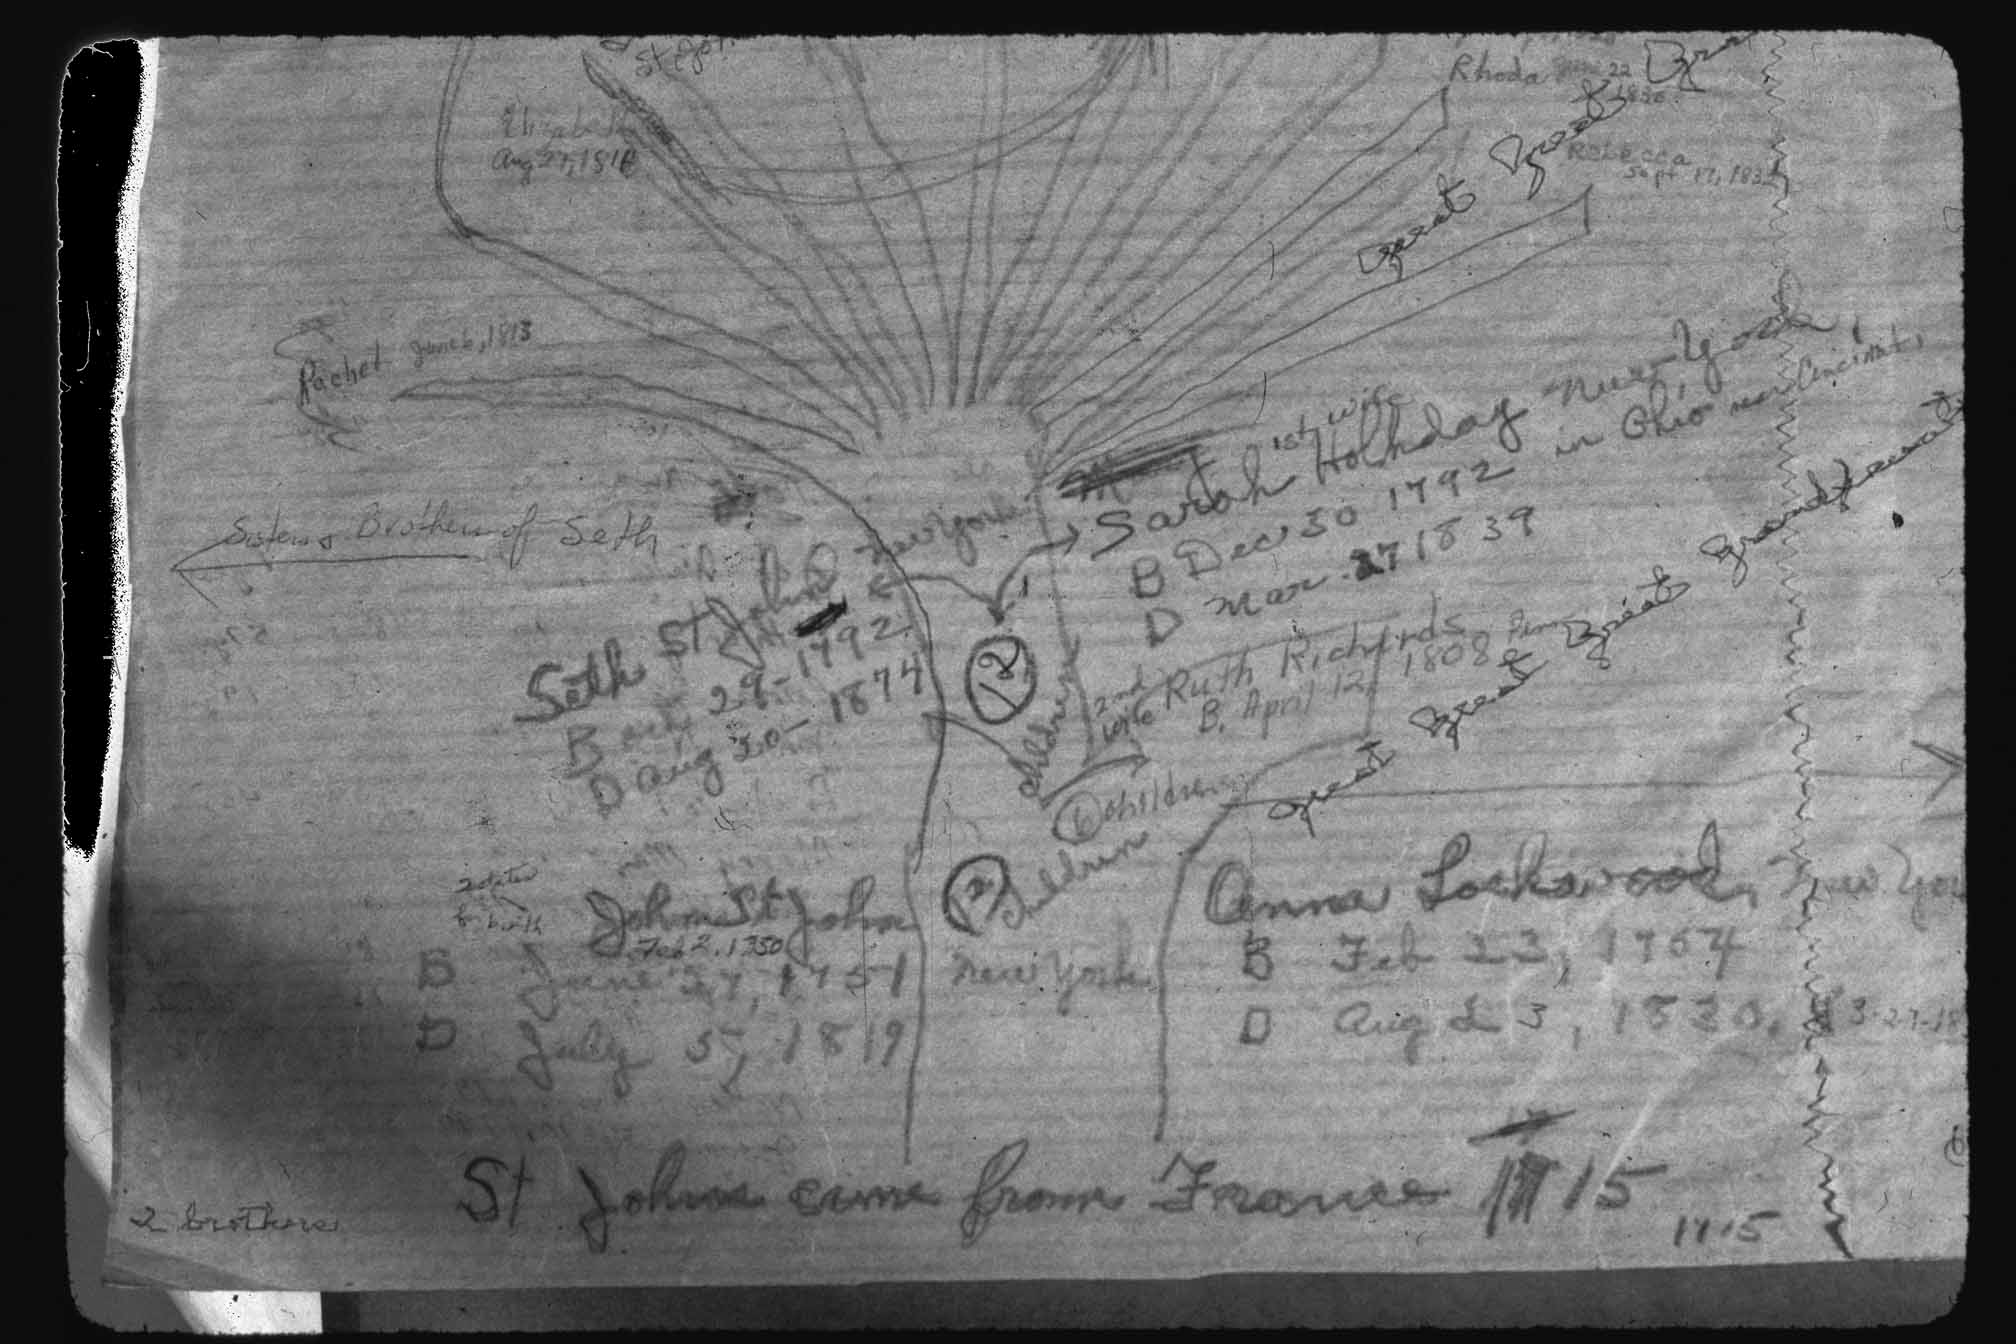 St Joh
Rhoda 22
1830
Great Great Gre
Elizabeth
Aug 27, 1816
Rebecca
Sept 17, 183
Rachel June 6, 1813
1st wife
Sarah Holliday New York
B Dec 30 1792 in Ohio near Cincinnati,
D Mar 27 1839
Sisters & Brothers of Seth
Seth St John New York
B 29-1792
D Aug 20-1874
12
children
2nd wife Ruth Richards
B. April 12, 1808
children
Great Great Great Grandparents
2 dates
for birth
John St John
Feb 2, 1750
B June 27, 1751 New York
D July 5, 1819
12 children
Anna Lockwood, New Yor
B Feb 23, 1754
D Aug 23, 1830, 3-27-18
St Johns came from France 1715
1715
2 brothers